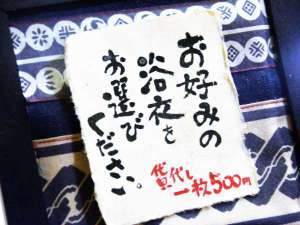 お好みの
浴衣を
お選び
ください。
貸代し
一枚500円